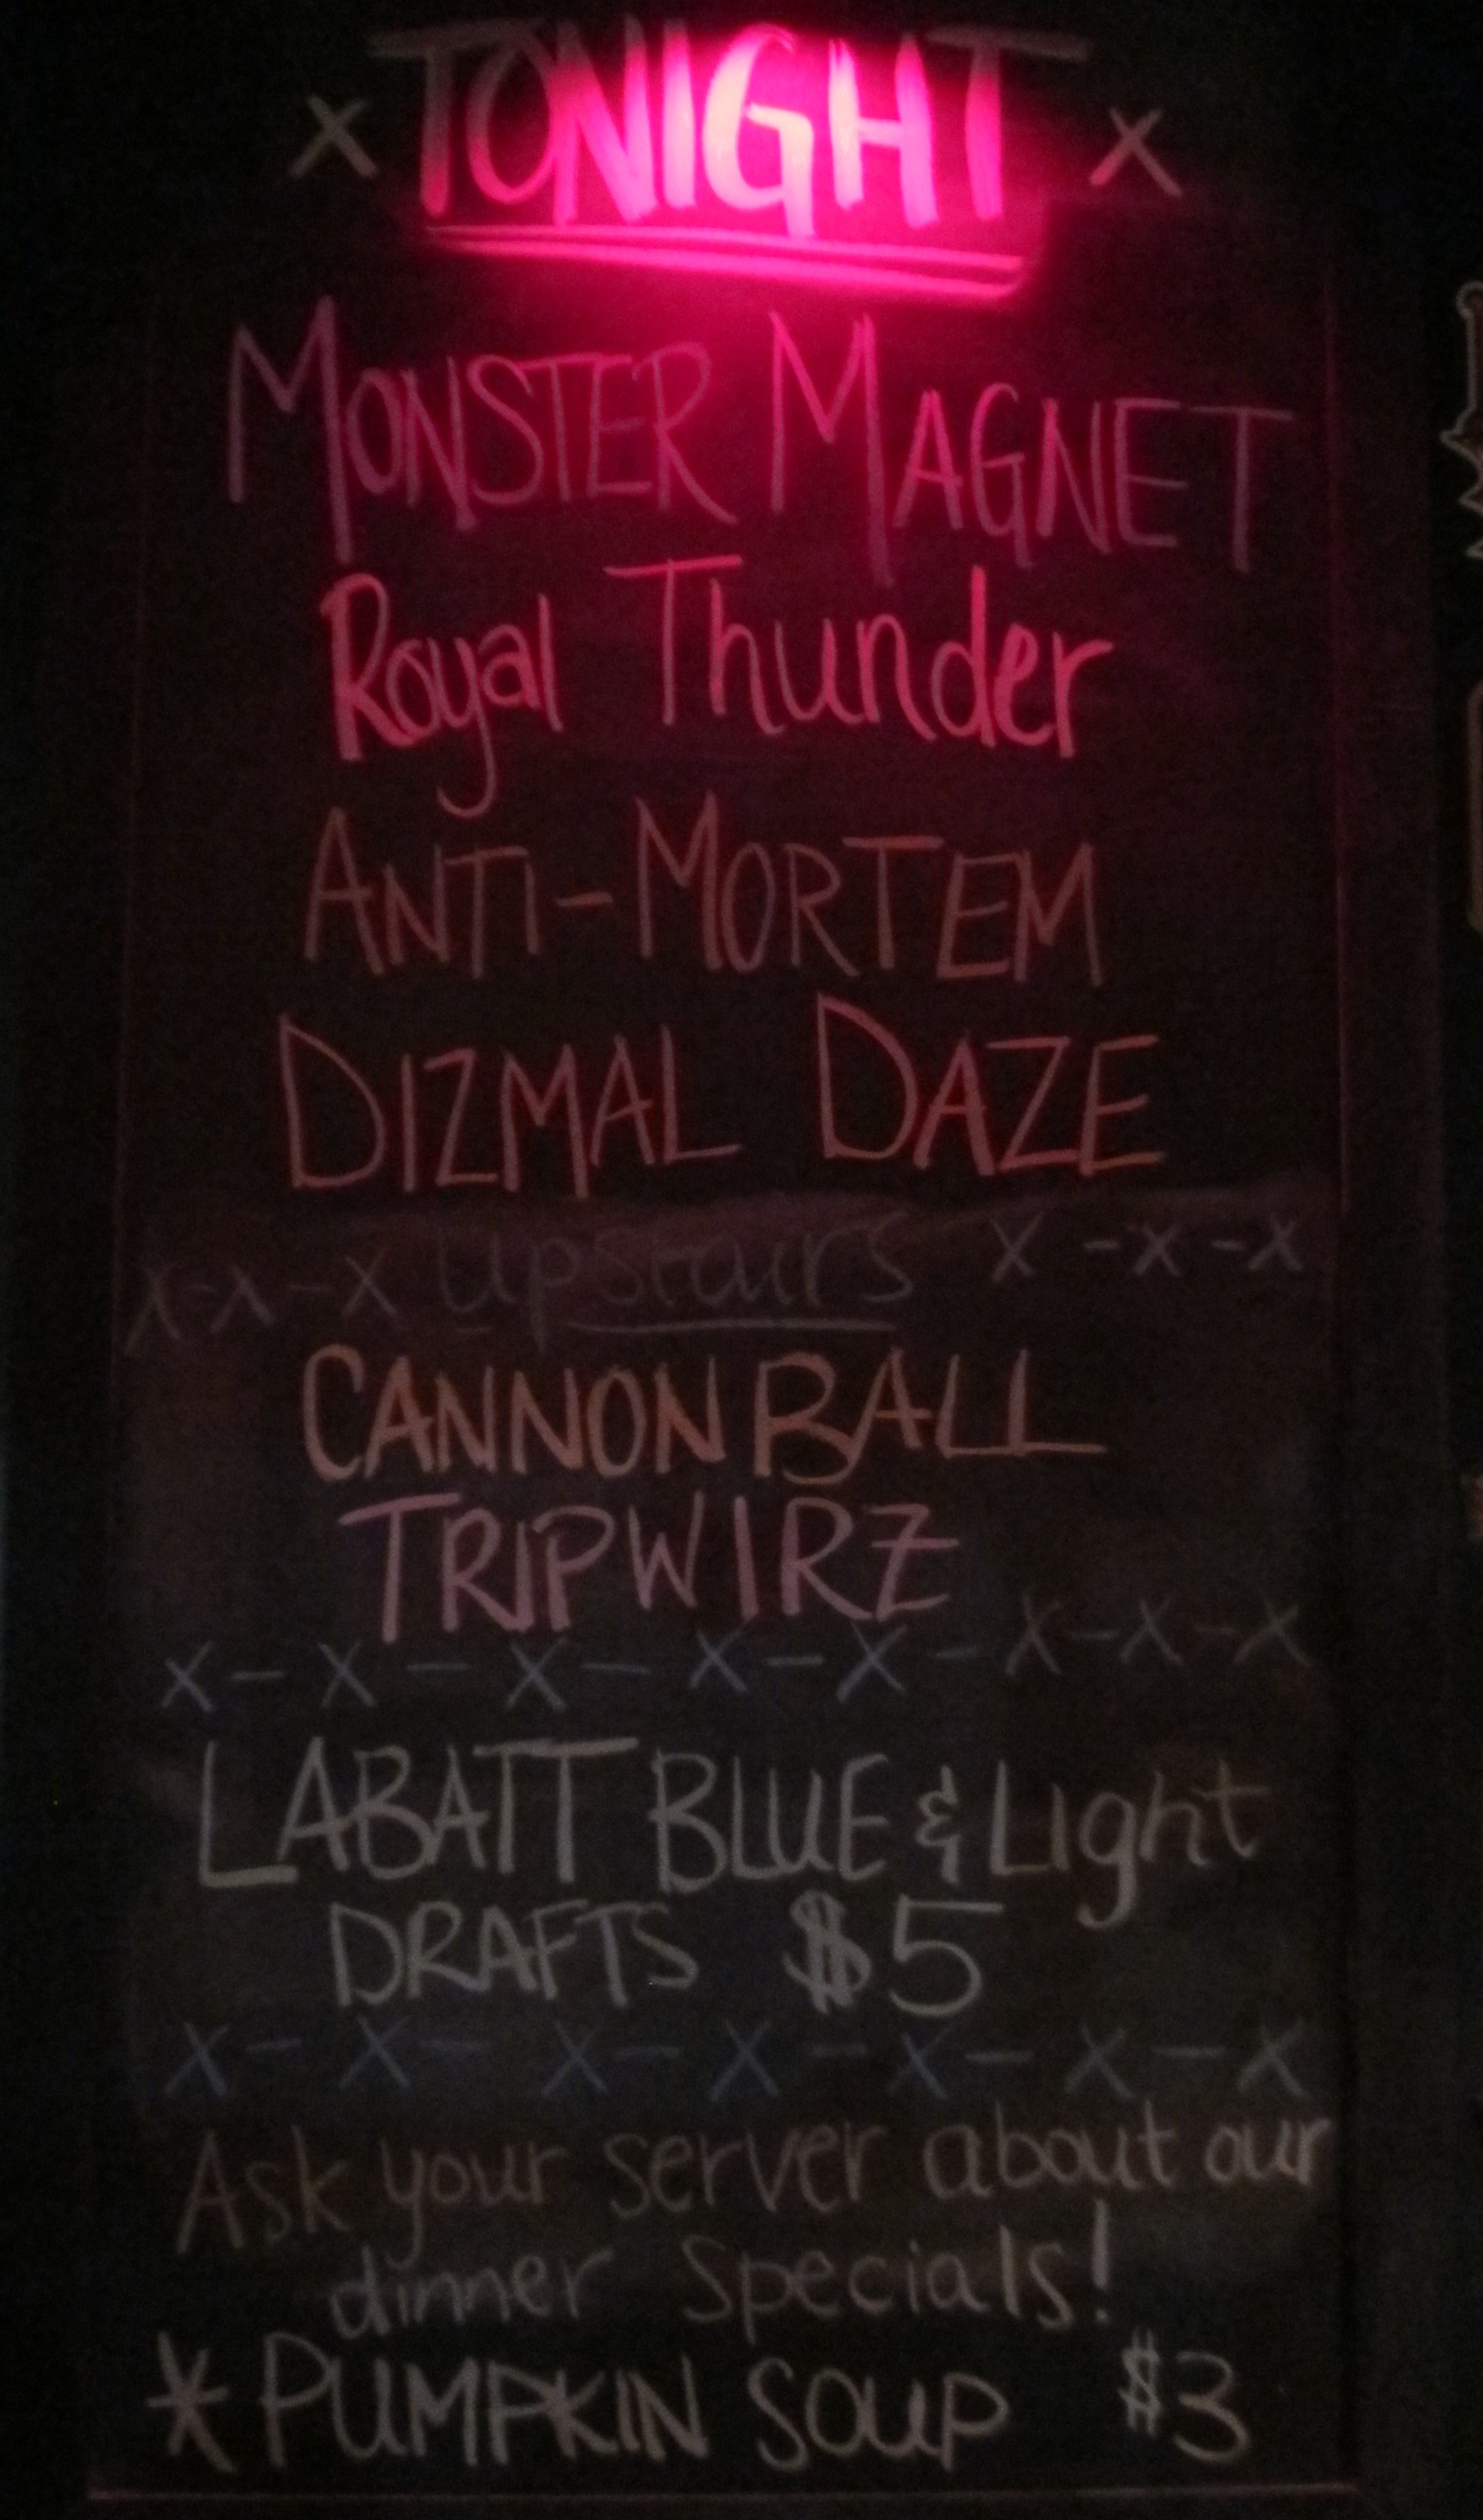 x TONIGHT x
MONSTER MAGNET
Royal Thunder
ANTI-MORTEM
DIZMAL DAZE
x-x-x Upstairs x-x-x
CANNONBALL
TRIPWIRZ
x-x-x-x-x-x-x-x
LABATT BLUE & Light
DRAFTS $5
x-x-x-x-x-x-x
Ask your server about our
dinner Specials!
*PUMPKIN SOUP $3